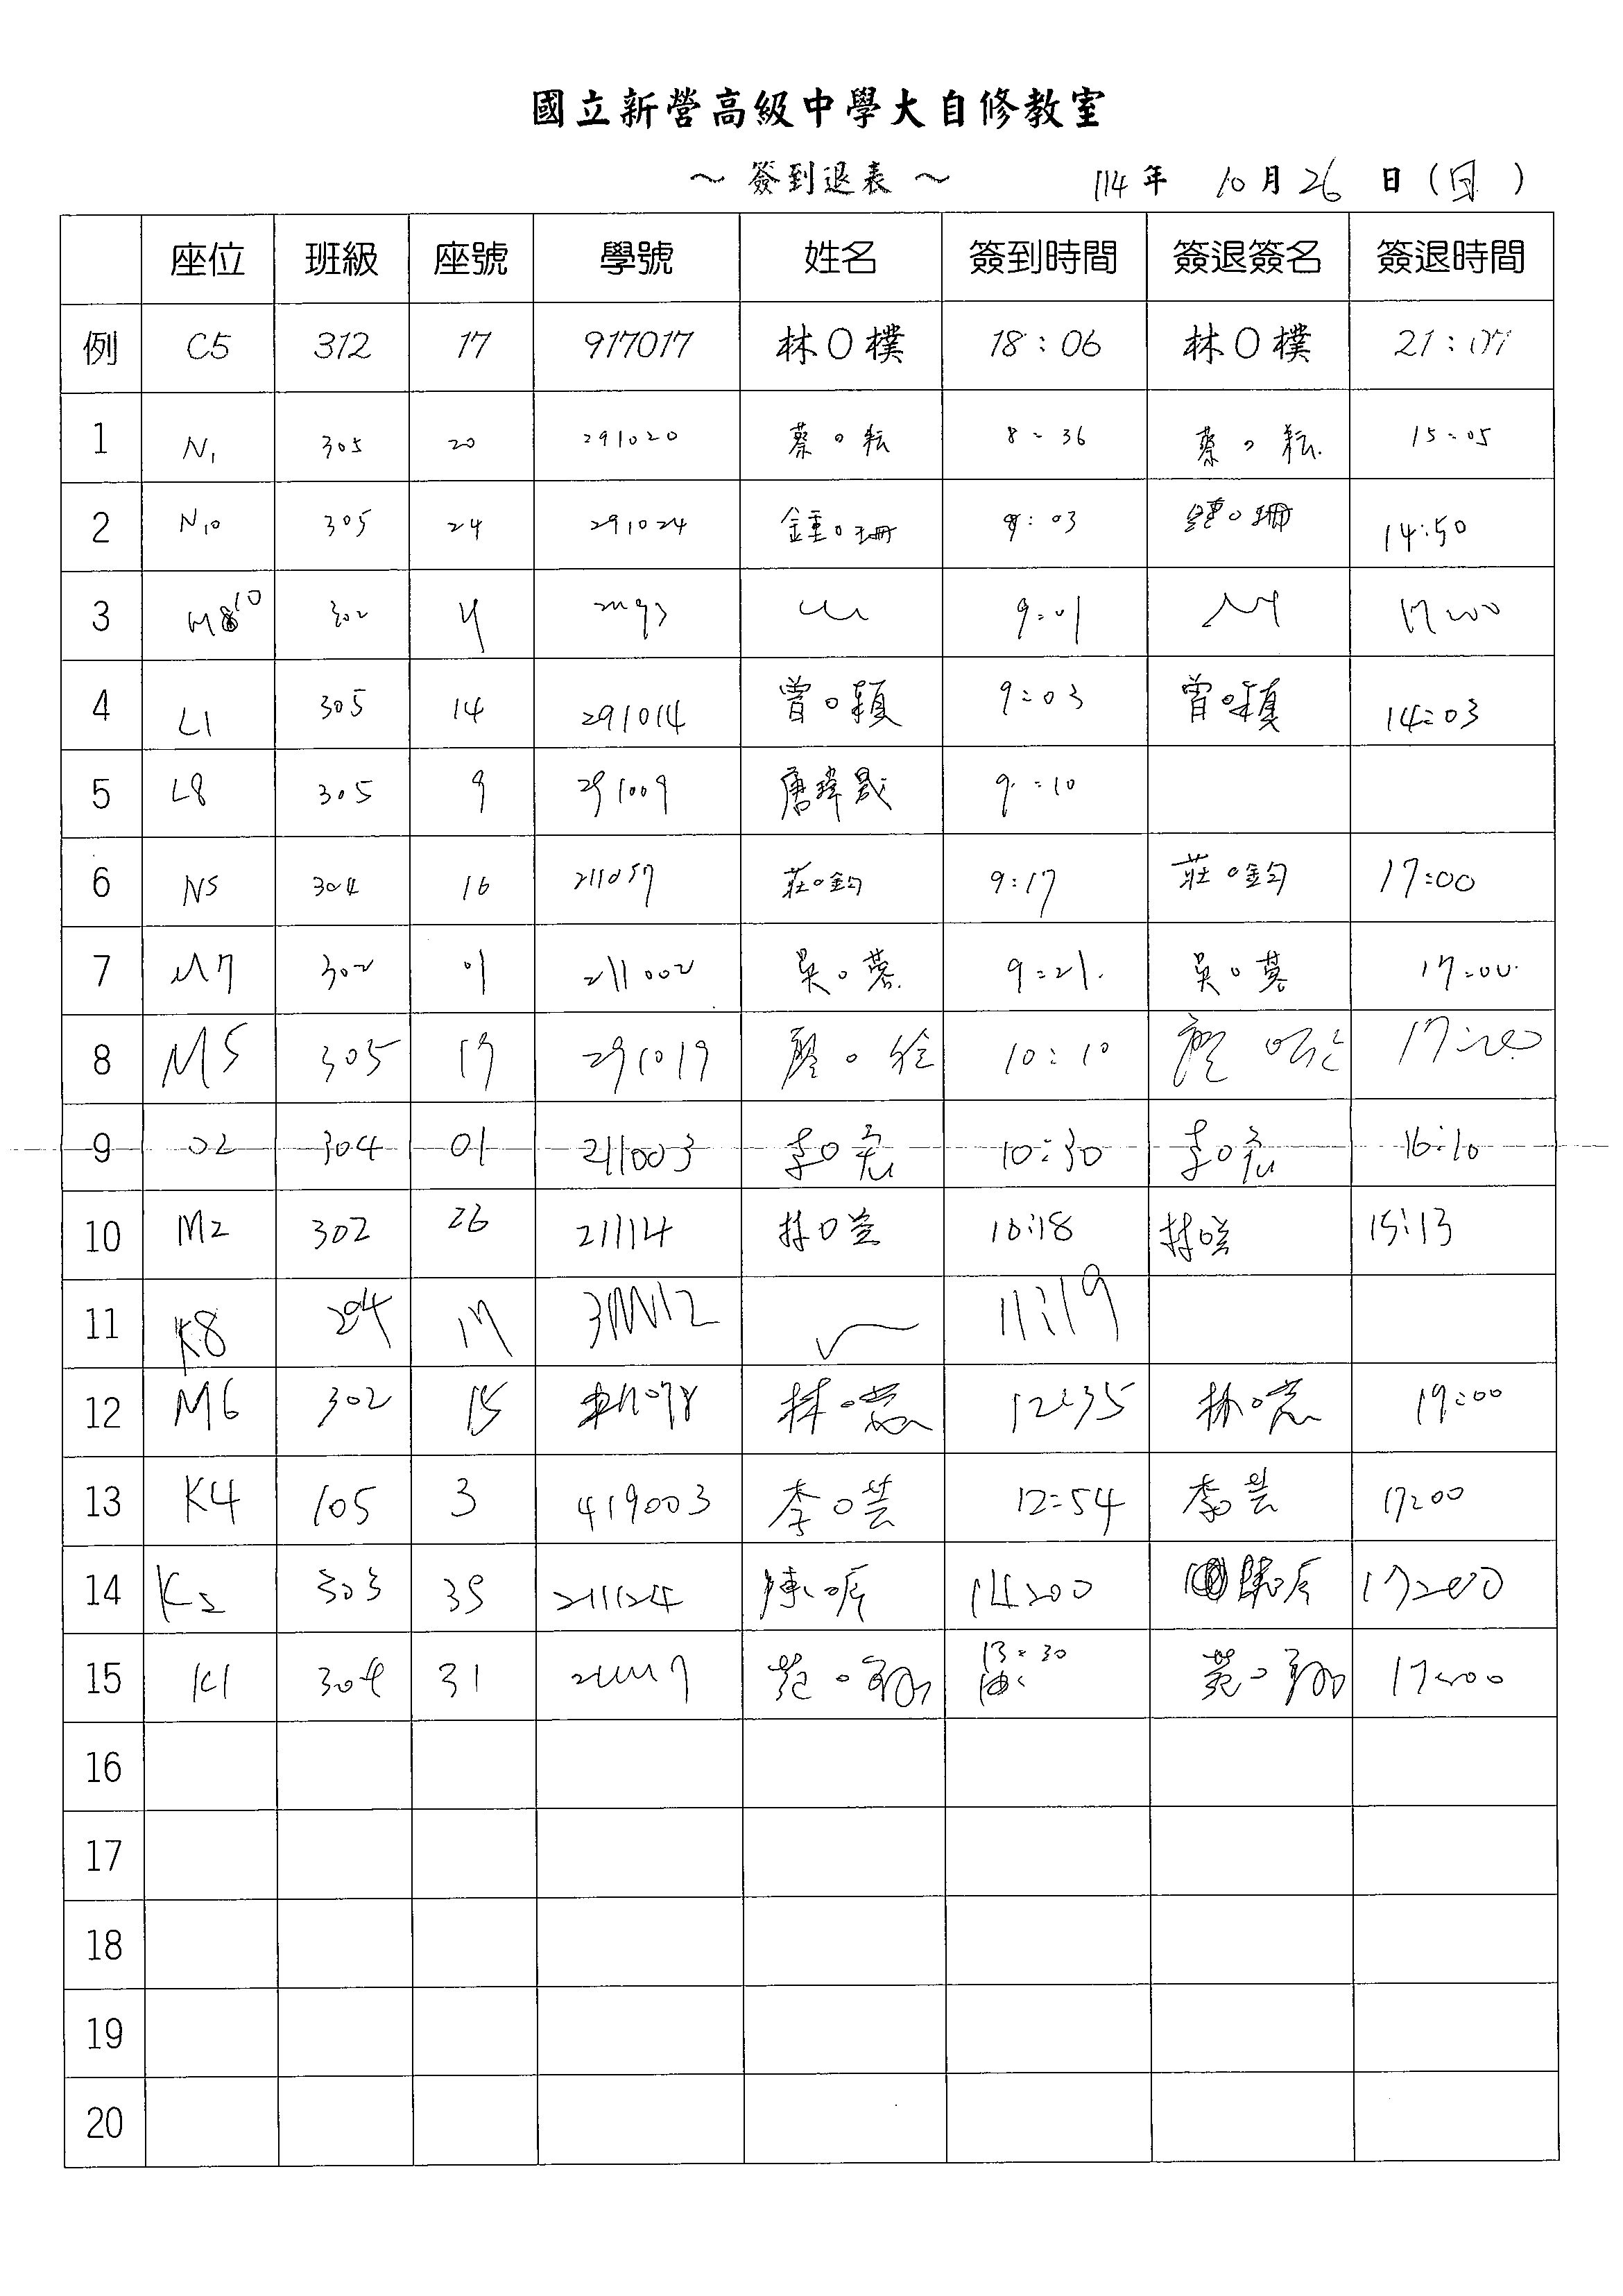 國立新營高級中學大自修教室
～ 簽到退表 ～ 114 年 10 月 26 日 (日)
座位 班級 座號 學號 姓名 簽到時間 簽退簽名 簽退時間
例 C5 312 17 917017 林O樸 18:06 林O樸 21:07
1 N1 305 20 291020 蔡O耘 8:36 蔡O耘 15:05
2 N10 305 24 291024 鍾O珊 8:03 鍾O珊 14:50
3 10 302 4 9:01 17:00
4 L1 305 14 291014 曾O穎 9:03 曾O穎 14:03
5 L8 305 9 291009 唐瑋晟 9:10
6 N5 304 16 211057 莊O鈞 9:17 莊O鈞 17:00
7 M7 302 01 211002 吳O蓉 9:21 吳O蓉 17:00
8 M5 305 19 291019 廖O 10:10 廖O 17:00
9 O2 304 01 211003 李O 10:30 李O 16:10
10 M2 302 26 211114 林O萱 10:18 林O萱 15:13
11 K8 204 17 11:19
12 M6 302 15 林O 12:35 林O 19:00
13 K4 105 3 419003 李O芸 12:54 李O芸 17:00
14 K2 303 35 211124 陳O 14:00 陳O 17:00
15 K1 304 31 范O 13:30 范O 17:00
16
17
18
19
20